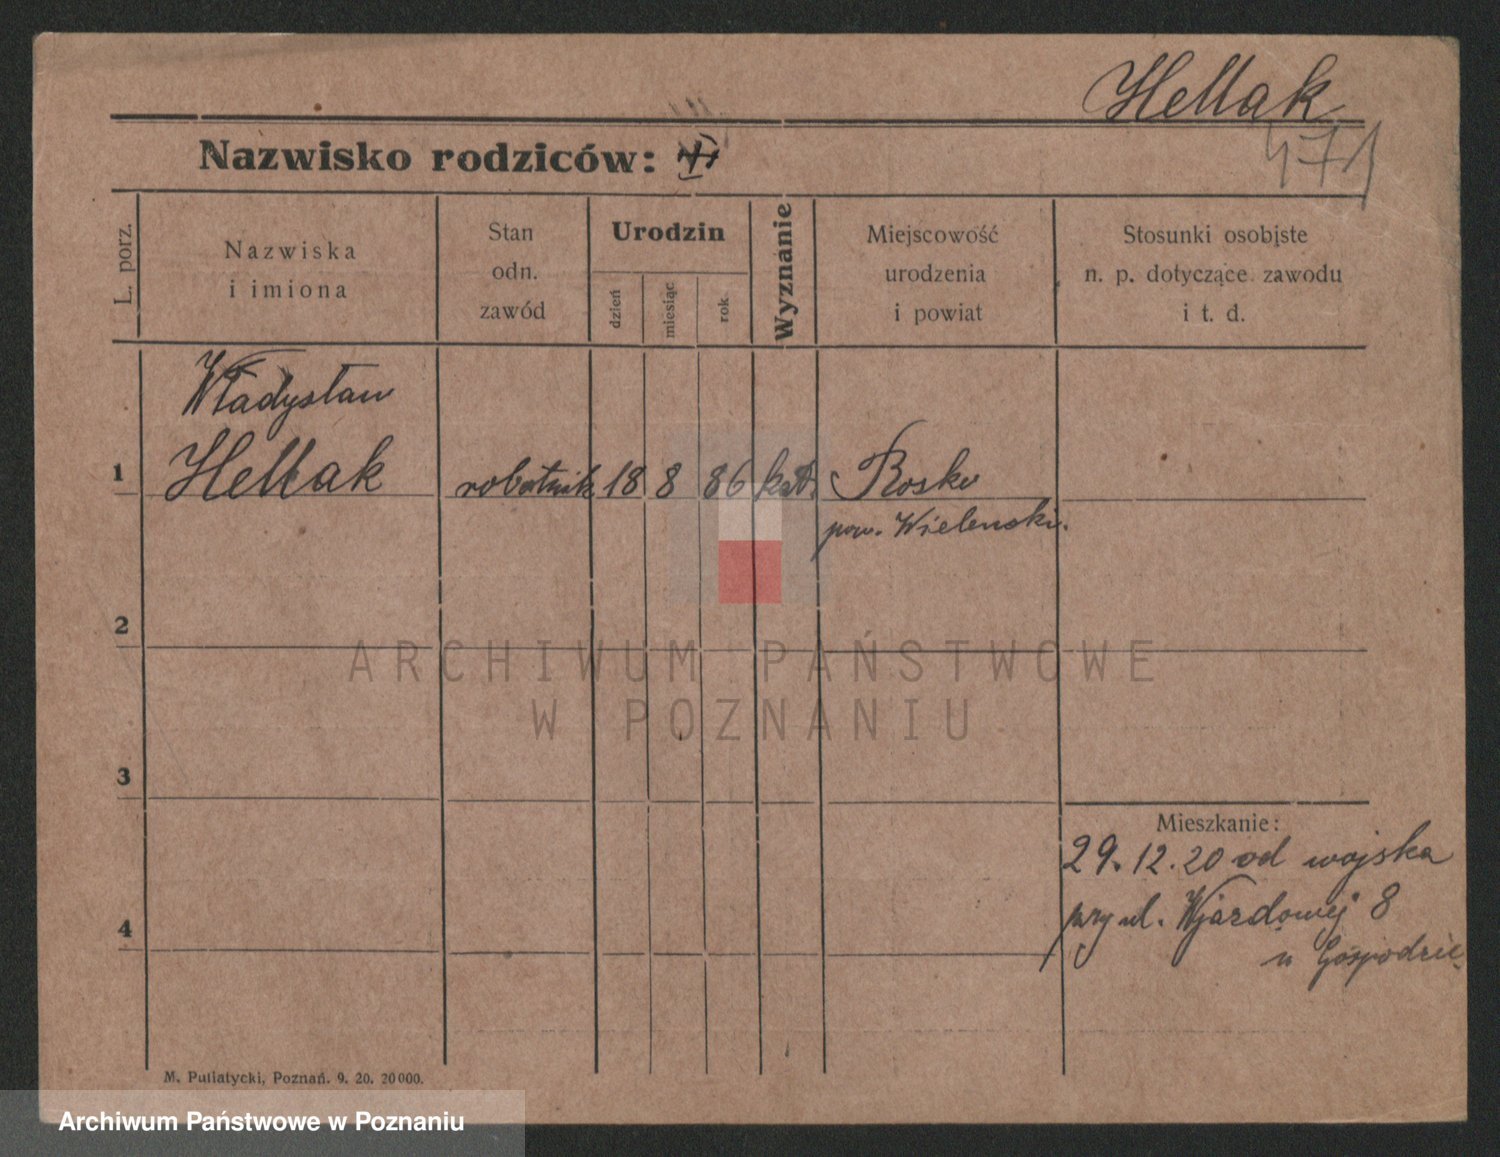 Hellak
471
Nazwisko rodziców:
L. porz.
Nazwiska
i imiona
Stan
odn.
zawód
Urodzin
dzień
miesiąc
rok
Wyznanie
Miejscowość
urodzenia
i powiat
Stosunki osobiste
n. p. dotyczące zawodu
i t. d.
Władysław
1 Hellak robotnik 18 8 86 kat. Rosko
pow. Wieleński.
2
3
Mieszkanie:
29.12.20 od wojska
przy ul. Wjazdowej 8
4
w Gospodzie
ARCHIWUM PAŃSTWOWE
W POZNANIU
M. Putiatycki, Poznań. 9. 20. 20000.
Archiwum Państwowe w Poznaniu